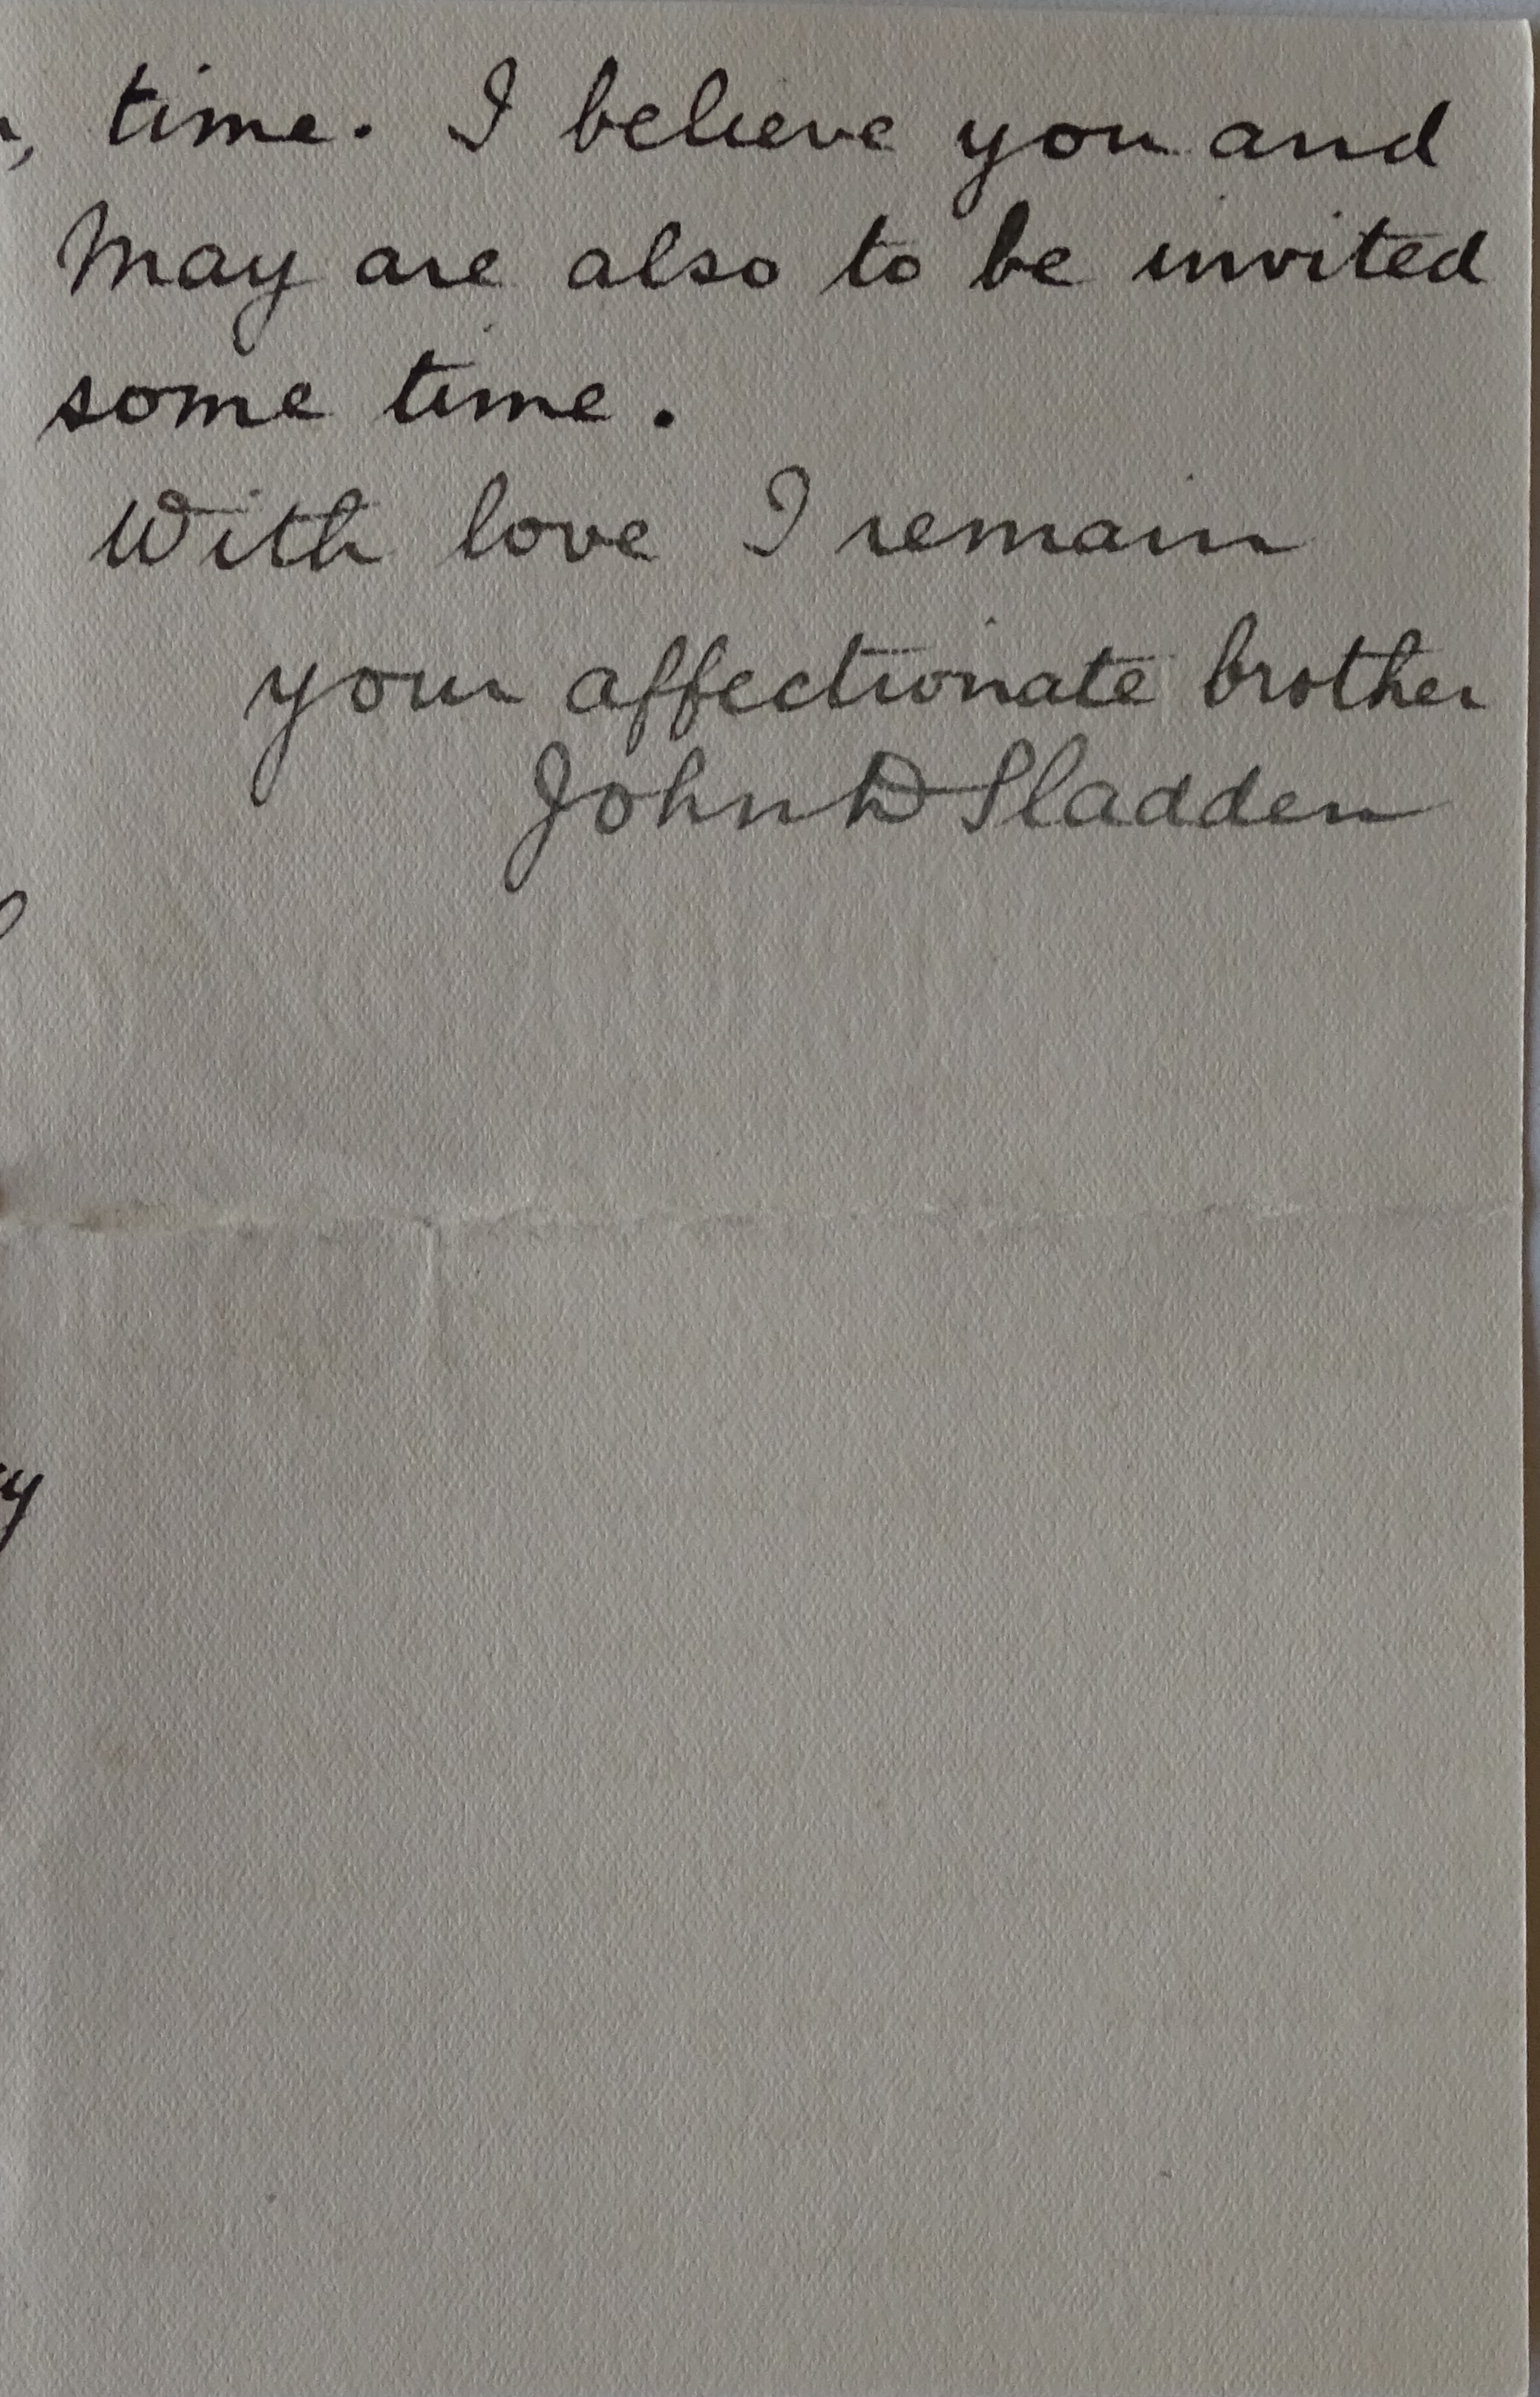 time. I believe you and
May are also to be invited
some time.
With love I remain
your affectionate brother
John D Sladden